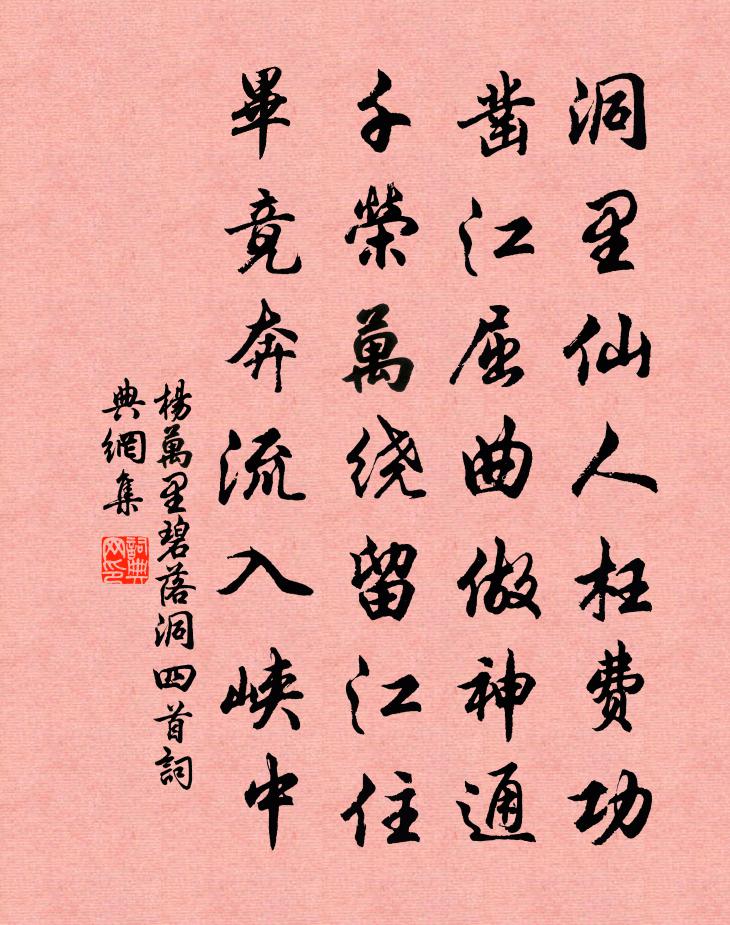 洞里仙人枉费功
凿江屈曲做神通
千萦萬绕留江住
畢竟奔流入峡中
楊萬里碧落洞四首詞
典網集
詞典
网印